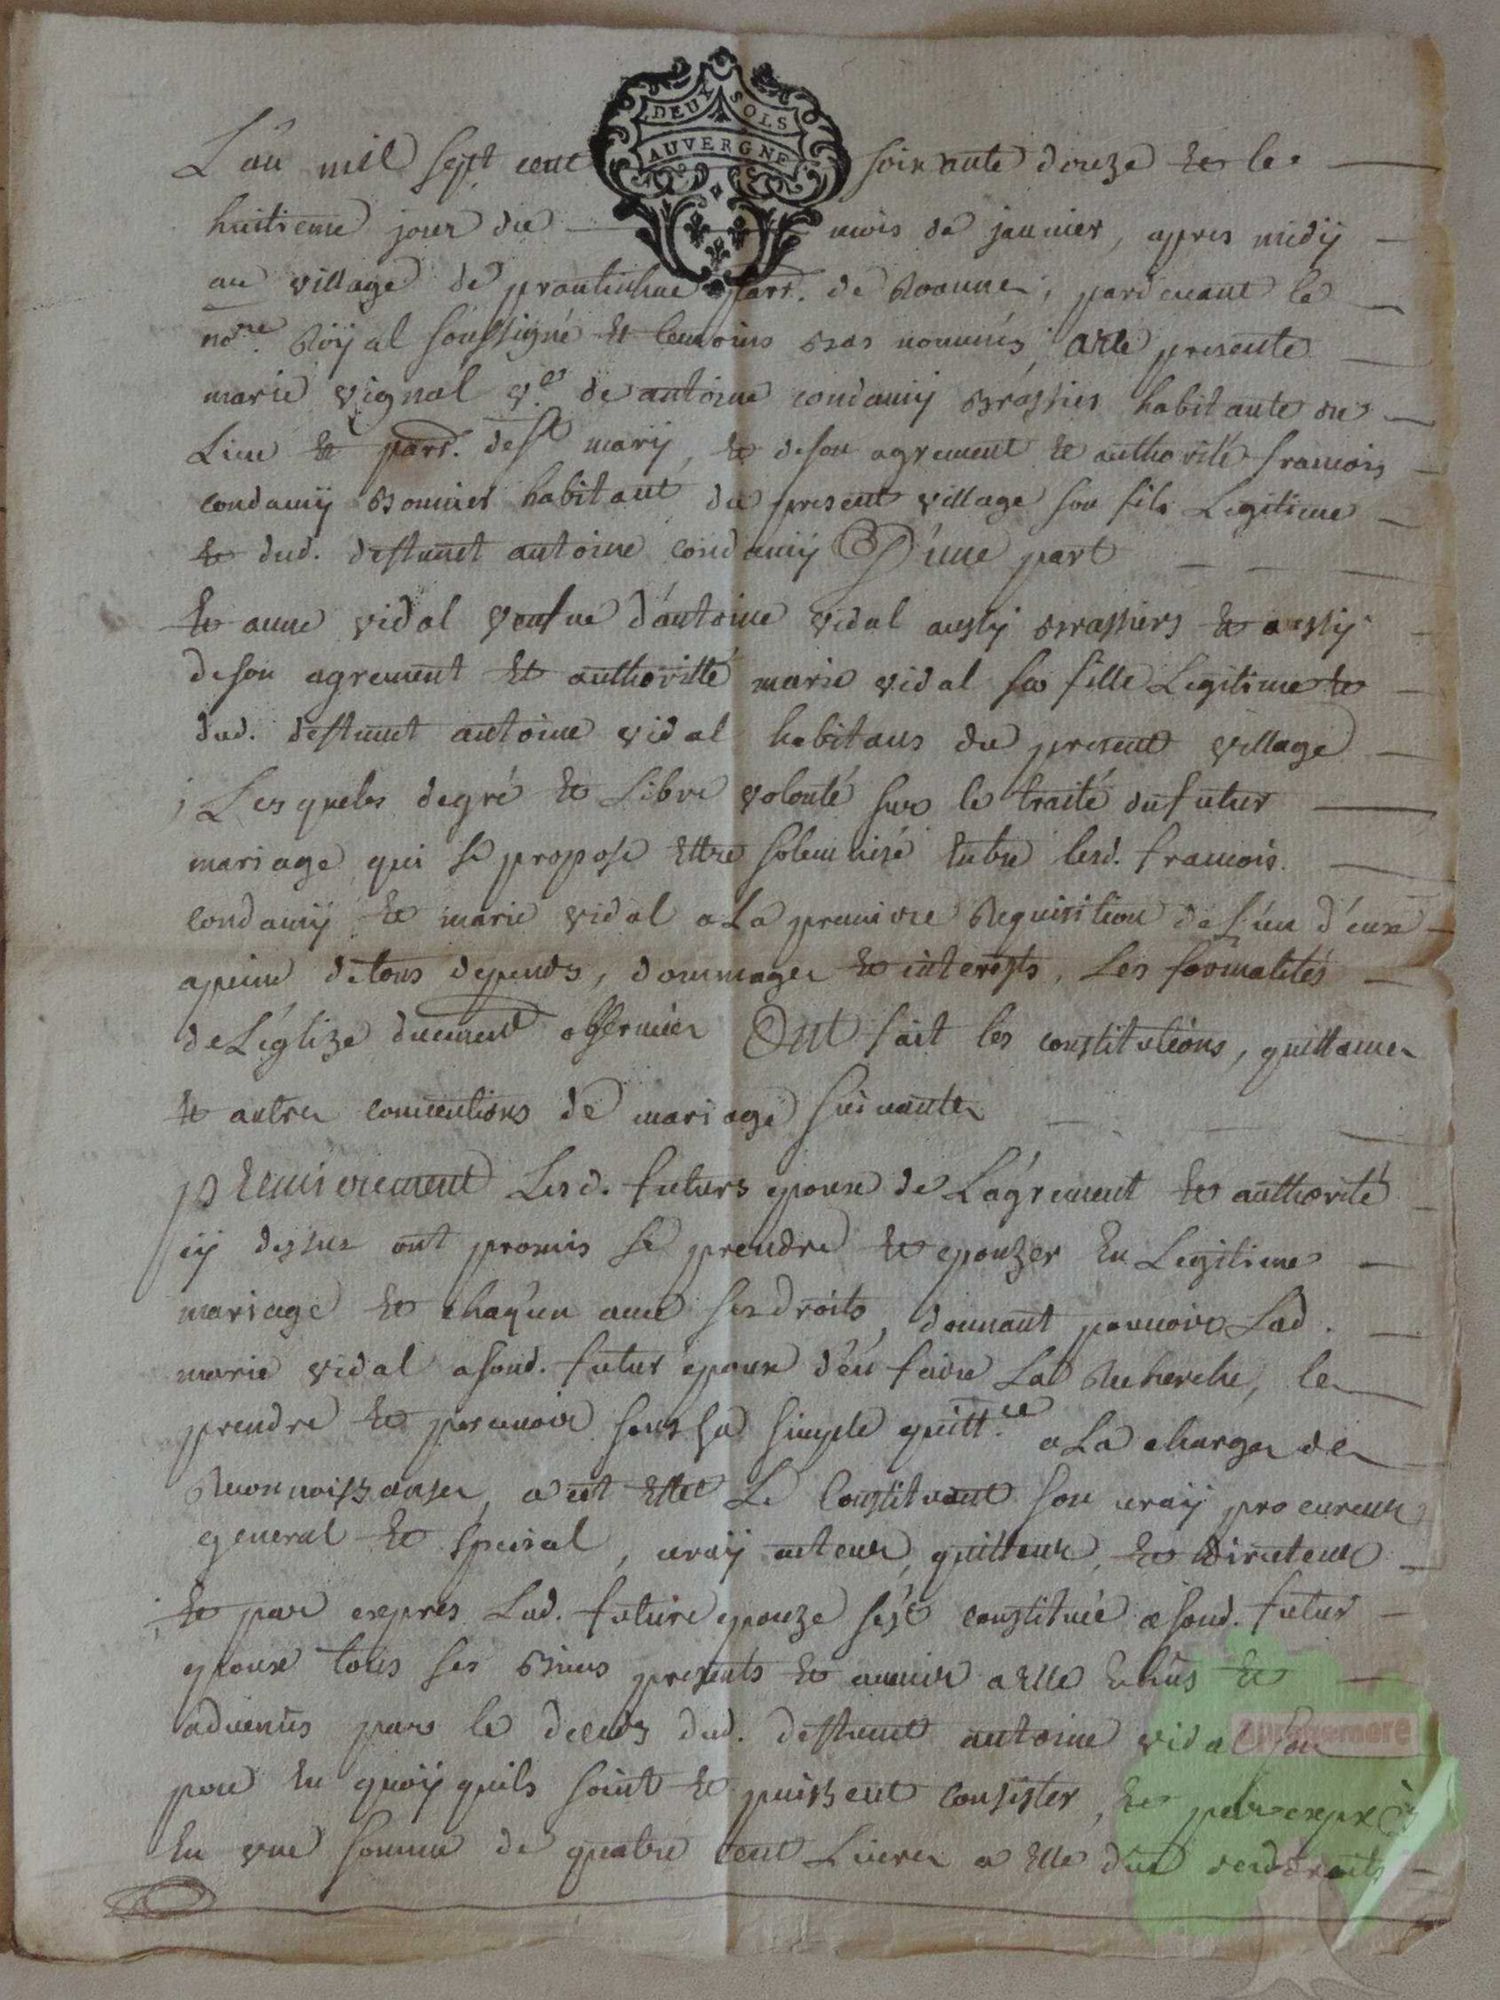 DEUX SOLS
AUVERGNE
L'an mil sept cent soixante douze et le
huitieme jour du mois de janvier, apres midÿ
au village de prantinhac parr. de Roannes, pardevant le
no.re Roÿal soussigné et temoins bas nommés, a été presente
marie vignal v.e de antoine condamÿ brassier habitante du
Lieu et parr. de S.t marÿ, et de son agrement et authorité francois
condamÿ bounier habitant du present village son fils Legitime
et dud. deffunct antoine condamÿ D'une part
Et anne vidal veufve d'antoine vidal aussÿ brassiers et aussÿ
de son agrement et authoritté marie vidal sa fille Legitime et
dud. deffunct antoine vidal habitans du present village
Lesquels de gré et Libre volonté sur le traité du futur
mariage qui se propose ettre solemnisé entre lesd. francois
condamÿ et marie vidal a La premiere Requisition de L'un d'eux
a peine de tous depends, dommages et interests, Les formalités
de L'eglize duement observées Ont fait les constitutions, quittances
et autres conventions de mariage suivantes
premierement Lesd. futurs epoux de L'agrement et authorité
cÿ dessus ont promis se prendre et epouzer en Legitime
mariage et chaqun avec ses droits, donnant pouvoir Lad.
marie vidal a sond. futur epoux d'en faire La Recherche, les
prendre et percevoir sous sa simple quitt.ce a La charge de
Reconnoissanse, a cet effet Le Constituant son vraÿ procureur
general et special, vraÿ acteur, quitteur, et directeur
et par expres Lad. future epouze s'est constituée a sond. futur
epoux tous ses biens presents et avenir a elle echus et
advenus par le deceds dud. deffunct antoine vidal son
pere en quoÿ quils soint et puissent consister, et par exprès
en une somme de quatre cent Livres a elle due desd. droits
aprogemere